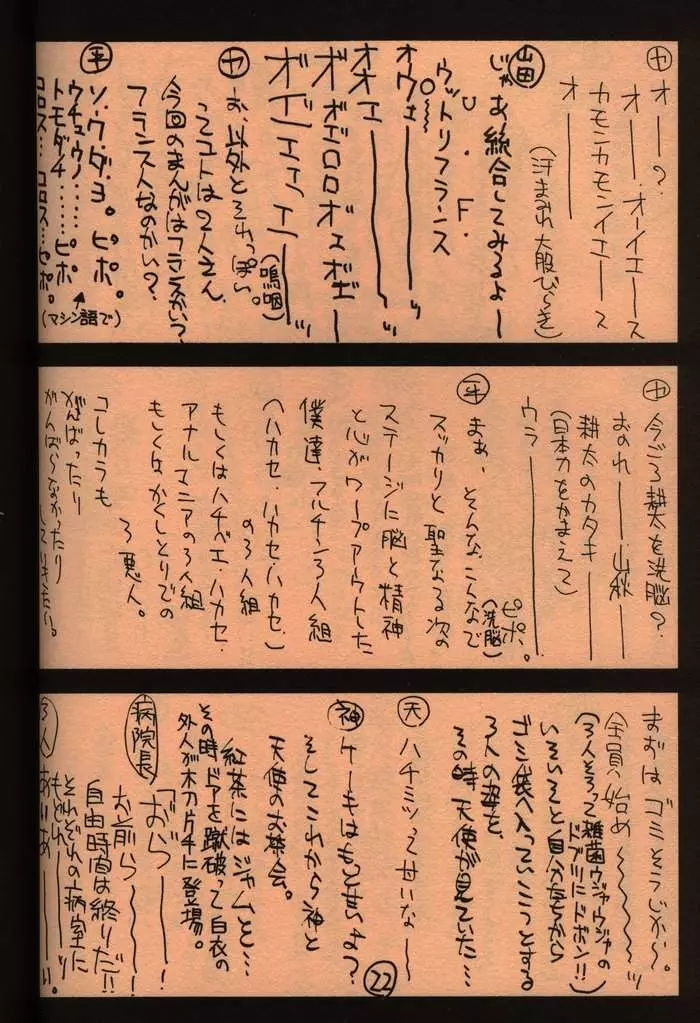 ヤ
オ――?
オ――.オーイエース
カモンカモンイエース
オ――――
(汗まみれ大股びらき)
山田
じゃあ統合してみるよー
U.F.
O
ウットリフランス
オウェ――――ッ
オオェ――――ッ
オボエロロオェボェー
オエエェエ――――ッ
(嗚咽)
ヤ
お、以外とそれっぽい。
ってコトは2人さん、
今回のまんがはフランスかい?
フランス人なのかい?
平
ソ.ウ.ダ.ヨ。ピポ。
ウチュウノ……ピポ
トモダチ……ピポ。
コロス…コロス…ピポ。
(マシン語で)
ヤ
今ごろ耕太を洗脳?
おのれ――山秋――
耕太のカタキ――――
(日本刀をかまえて)
ウラ――――――
ピポ。
(洗脳)
平
まぁ、そんな、こんなで
スッカリと聖なる次の
ステージに脳と精神
と心がワープアウトした
僕達、フルチン3人組
(ハカセ・ハカセ・ハカセ)
の3人組
もしくはハチベエ・ハカセ・
アナルマニアの3人組
もしくはかくしとりでの
3悪人。
コレカラも
がんばったり
がんばらなかったり
していきたい。
まずはゴミそうじから。
全員、始め〜〜〜〜〜ッ
(3人そろって雑菌ウジャウジャの
ドブ川にドボン!!)
いそいそと自分たちから
ゴミ袋へ入っていこうとする
3人の姿を、
その時天使が見ていた…
天
ハチミツって甘いな〜
神
ケーキはもっと甘いよ?
そしてこれから神と
天使のお茶会。
紅茶にはジャムと…
その時ドアを蹴破って白衣の
外人が木刀片手に登場。
病院長
「おら――――!
お前ら――――!
自由時間は終りだ!!
それぞれの病室に
もどれ――――ッ
3人
あいあ――――い。
22